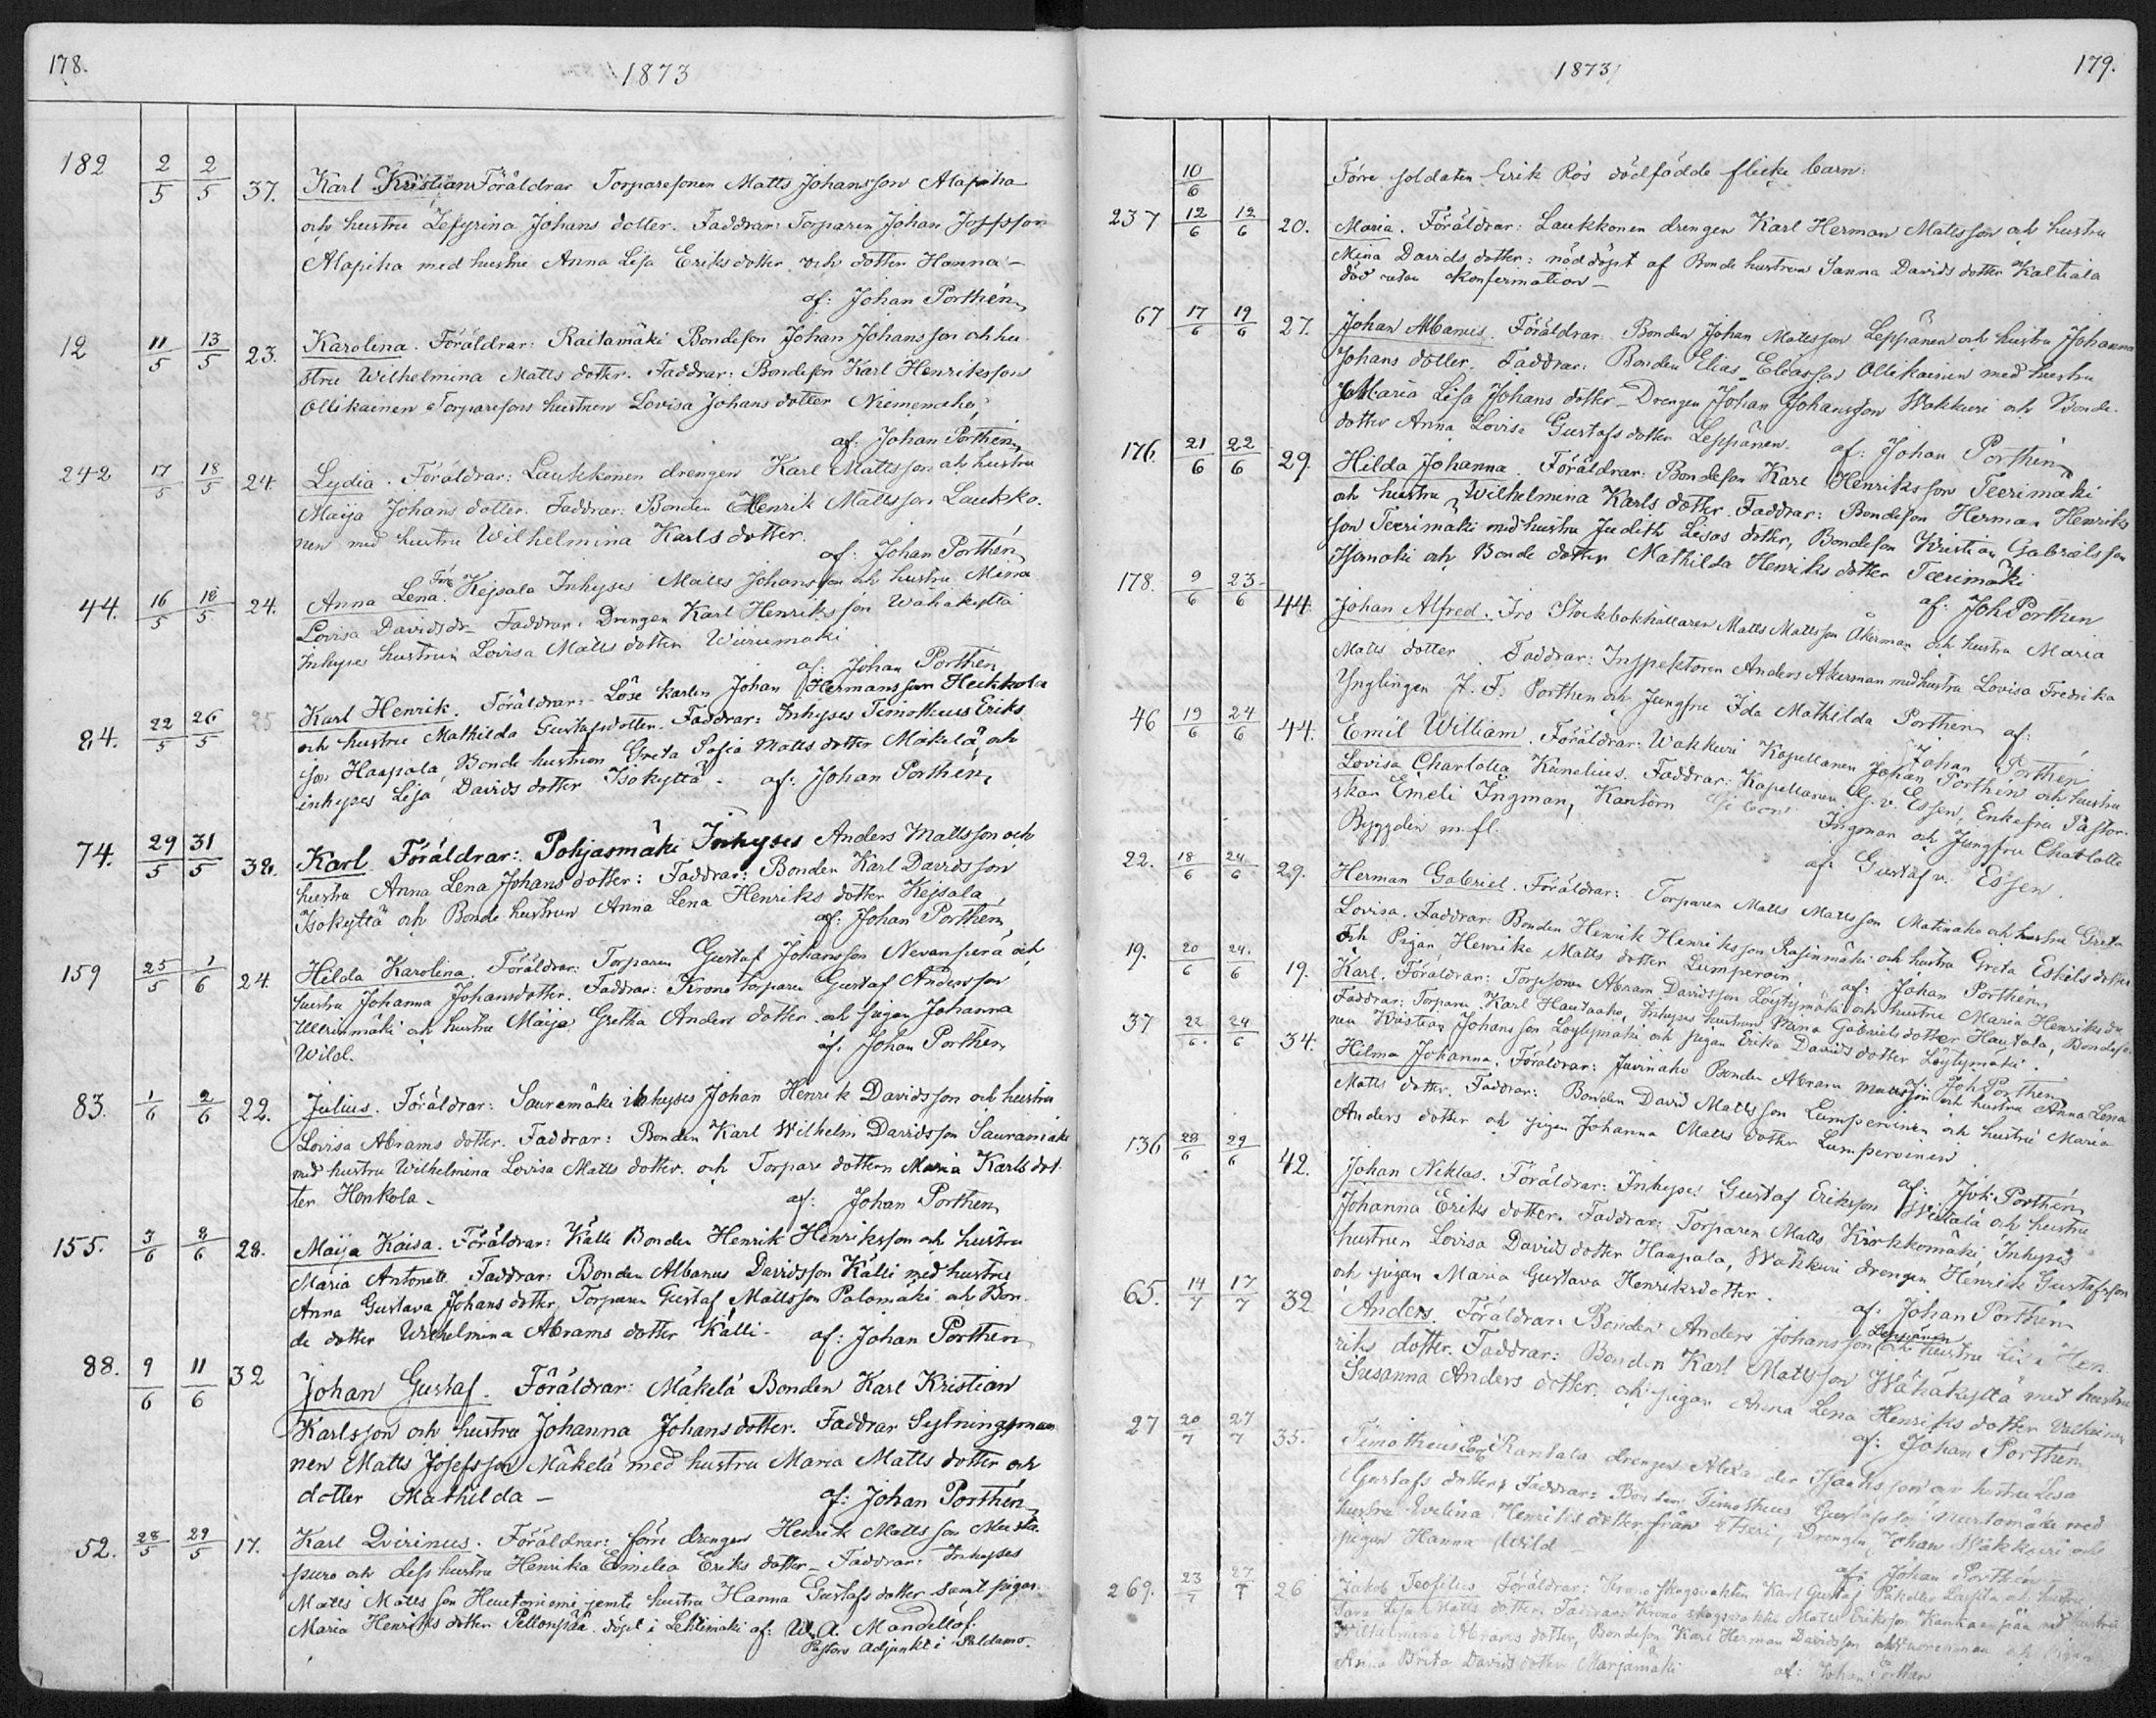 178.
1873
182 2/5 2/5 37. Karl Kristian Föräldrar Torparesonen Matts Johansson Alapiha
och hustru Zefyrina Johans dotter. Faddrar: Torparen Johan
Alapiha med hustru Anna Lisa Eriksdotter och dotter Hanna –
af: Johan Porthén
12 11/5 13/5 23. Karolina. Föräldrar: Raitamäki Bondeson Johan Johansson och hu
stru Wilhelmina Matts dotter. Faddrar: Bondeson Karl Henriksson
Ollikainen Torparesons hustrun Lovisa Johans dotter
af: Johan Porthén
242 17/5 18/5 24. Lydia. Föräldrar: Laukkonen drengen Karl Mattsson och hustru
Maija Johans dotter. Faddrar: Bonden Henrik Mattsson Laukko
nen med hustru Wilhelmina Karls dotter.
af: Johan Porthén
44. 16/5 18/5 24. Anna Lena. Kejsala Inhyses Matts Johansson och hustru Mina
Lovisa Davidsdr – Faddrar: Drengen Karl Henriksson Wähäkyttä
Inhyses hustrun Lovisa Matts dotter Wuorumäki
af: Johan Porthén
84. 22/5 26/5 25 Karl Henrik. Föräldrar: Löse karlen Johan Hermansson Heikkola
och hustru Mathilda Gustafsdotter. Faddrar: Inhyses Timotheus Eriks
son Haapala, Bonde hustrun Greta Sofia Matts dotter Mäkelä, och
inhyses Lisa Davids dotter Isokyttä – af: Johan Porthén
74. 29/5 31/5 38. Karl Föräldrar: Pohjasmäki Inhyses Anders Mattsson och
hustru Anna Lena Johans dotter: Faddrar: Bonden Karl Davidsson
Isokyttä och Bonde hustrun Anna Lena Henriks dotter Kejsala
af: Johan Porthén
159 25/5 1/6 24. Hilda Karolina. Föräldrar: Torparen Gustaf Johansson Nevanperä och
hustru Johanna Johansdotter. Faddrar: Krono torparen Gustaf Andersson
och hustru Maija Gretha Anders dotter och pigan Johanna
Wild. af. Johan Porthén
83. 1/6 2/6 22. Julius. Föräldrar: Sauramäki inhyses Johan Henrik Davidsson och hustru
Lovisa Abrams dotter. Faddrar: Bonden Karl Wilhelm Davidsson Sauramäki
med hustru Wilhelmina Lovisa Matts dotter. och Torpare dottern Maria Karls dot
ter Honkola – af: Johan Porthén
155. 3/6 8/6 28. Maija Kaisa. Föräldrar: Källi Bonden Henrik Henriksson och hustru
Maria Antonett. Faddrar: Bonden Albanus Davidsson Källi med hustru
Anna Gustava Johans dotter, Torparen Gustaf Mattsson Palomäki och Bon
de dotter Wilhelmina Abrams dotter Källi – af: Johan Porthén
88. 9/6 11/6 32 Johan Gustaf. Föräldrar: Mäkelä Bonden Karl Kristian
Karlsson och hustru Johanna Johans dotter. Faddrar Sytningsman
nen Matts Josefsson Mäkelä med hustru Maria Matts dotter och
dotter Mathilda – af: Johan Porthén
52. 28/5 29/5 17. Karl Qvirinus. Föräldrar: förre drengen Henrik Mattsson Musta
puro och dess hustru Henrika Emilia Eriks dotter – Faddrar: Inhyses
Matts Matts son Huutoniemi jemte hustru Hanna Gustafs dotter samt pigan
Maria Henriks dotter Pellonpää. döpt i Lehtimäki af: W. A. Mandellöf.
Pastors Adjunkt i Paldamo.
1873
179.
10/6 Förre soldaten Erik Rös dödfödde flicke barn:
237 12/6 12/6 20. Maria. Föräldrar: Laukkonen drengen Karl Herman Mattsson och hustru
Mina Davids dotter: nöddöpt af Bonde hustrun Sanna Davids dotter Kaltiala
död utan konfirmation –
67 17/6 19/6 27. Johan Albanus. Föräldrar Bonden Johan Mattsson Leppänen och hustru Johanna
Johans dotter. Faddrar: Bonden Elias Eliasson Ollikainen med hustru
Maria Lisa Johans dotter – Drengen Johan Johansson Wakkuri och Bonde
dotter Anna Lovisa Gustafs dotter Leppänen. af: Johan Porthén
176. 21/6 22/6 29. Hilda Johanna. Föräldrar: Bondeson Karl Henriksson Teerimäki
och hustru Wilhelmina Karls dotter. Faddrar: Bondeson Herman Henriks
son Teerimäki med hustru Judith Lisas dotter, Bondeson Kristian Gabrielsson
och Bonde dotter Mathilda Henriks dotter Teerimäki
af: Joh Porthén
178. 9/6 23/6 44 Johan Alfred. Stockbokhållaren Matts Mattsson Åkerman och hustru Maria
Matts dotter Faddrar: Inspektoren Anders Åkerman med hustru Lovisa Fredrika
Ynglingen J. F. Porthén och Jungfru Ida Mathilda Porthén af:
Johan Porthén
46 19/6 24/6 44. Emil William. Föräldrar: Wakkuri Kapellanen Johan Porthén och hustru
Lovisa Charlotta Kanelius. Faddrar: Kapellanen G. v. Essen, Enkefru Pastor
skan Emeli Ingman, Kantorn Ingman och Jungfru Charlotta
Byggdén m. fl. af: Gustaf v. Essen.
22. 18/6 24/6 29. Herman Gabriel. Föräldrar: Torparen Matts Mattsson Matinaho och hustru Greta
Lovisa. Faddrar: Bonden Henrik Henriksson Rasinmäki och hustru Greta Eskils dotter
och Pigan Henrika Matts dotter Lumperoin. af: Johan Porthén
19. 20/6 24/6 19. Karl. Föräldrar: Abram Davidsson Löytymäki och hustru Maria Henriks dr
Faddrar: Torparen Karl Hautaaho, Inhyses hustrun Mina Gabrielsdotter Hautala, Bondeso
nen Kristian Johansson Löytymäki och pigan Erika Davids dotter Löytymäki.
af: Joh Porthén
37 22/6 24/6 34. Hilma Johanna. Föräldrar: Juvinaho Bonden Abram Mattsson och hustru Anna Lena
Matts dotter. Faddrar: Bonden David Mattsson Lumperoinen och hustru Maria
Anders dotter och pigan Johanna Matts dotter Lumperoinen
af: Joh: Porthén
136 28/6 29/6 42. Johan Niklas. Föräldrar: Inhyses Gustaf Eriksson och hustru
Johanna Eriks dotter. Faddrar: Torparen Matts Kirkkomäki, Inhyses
hustrun Lovisa Davids dotter Haapala, Wakkuri drengen Henrik Gustafsson
och pigan Maria Gustava Henriksdotter.
af: Johan Porthén
65. 14/7 17/7 32 Anders. Föräldrar: Bonden Anders Johansson Leppänen och hustru Lisa Hen
riks dotter. Faddrar: Bonden Karl Mattsson Wähäkyttä med hustru
Susanna Anders dotter, och pigan Anna Lena Henriks dotter
af: Johan Porthén
27 20/7 27/7 35. Timotheus Rantala drengen Alexander Isaksson och hustru Lisa
Gustafs dotter. Faddrar: Bonden Timotheus Gustafsson med
hustru Evelina Henriks dotter från Drengen Johan Wakkuri och
pigan Hanna Wild –
af: Johan Porthén
269. 23/7 27/7 26 Jakob Teofilus. Föräldrar: Krono skogvakten Karl Gustaf och hustru
Sara Lisa Matts dotter. Faddrar: Krono skogvakten Matts Eriksson Kankaanpää med hustru
Wilhelmina Abrams dotter, Bondeson Karl Herman Davidsson och pigan
Anna Brita Davids dotter Marjamäki af: Johan Porthén